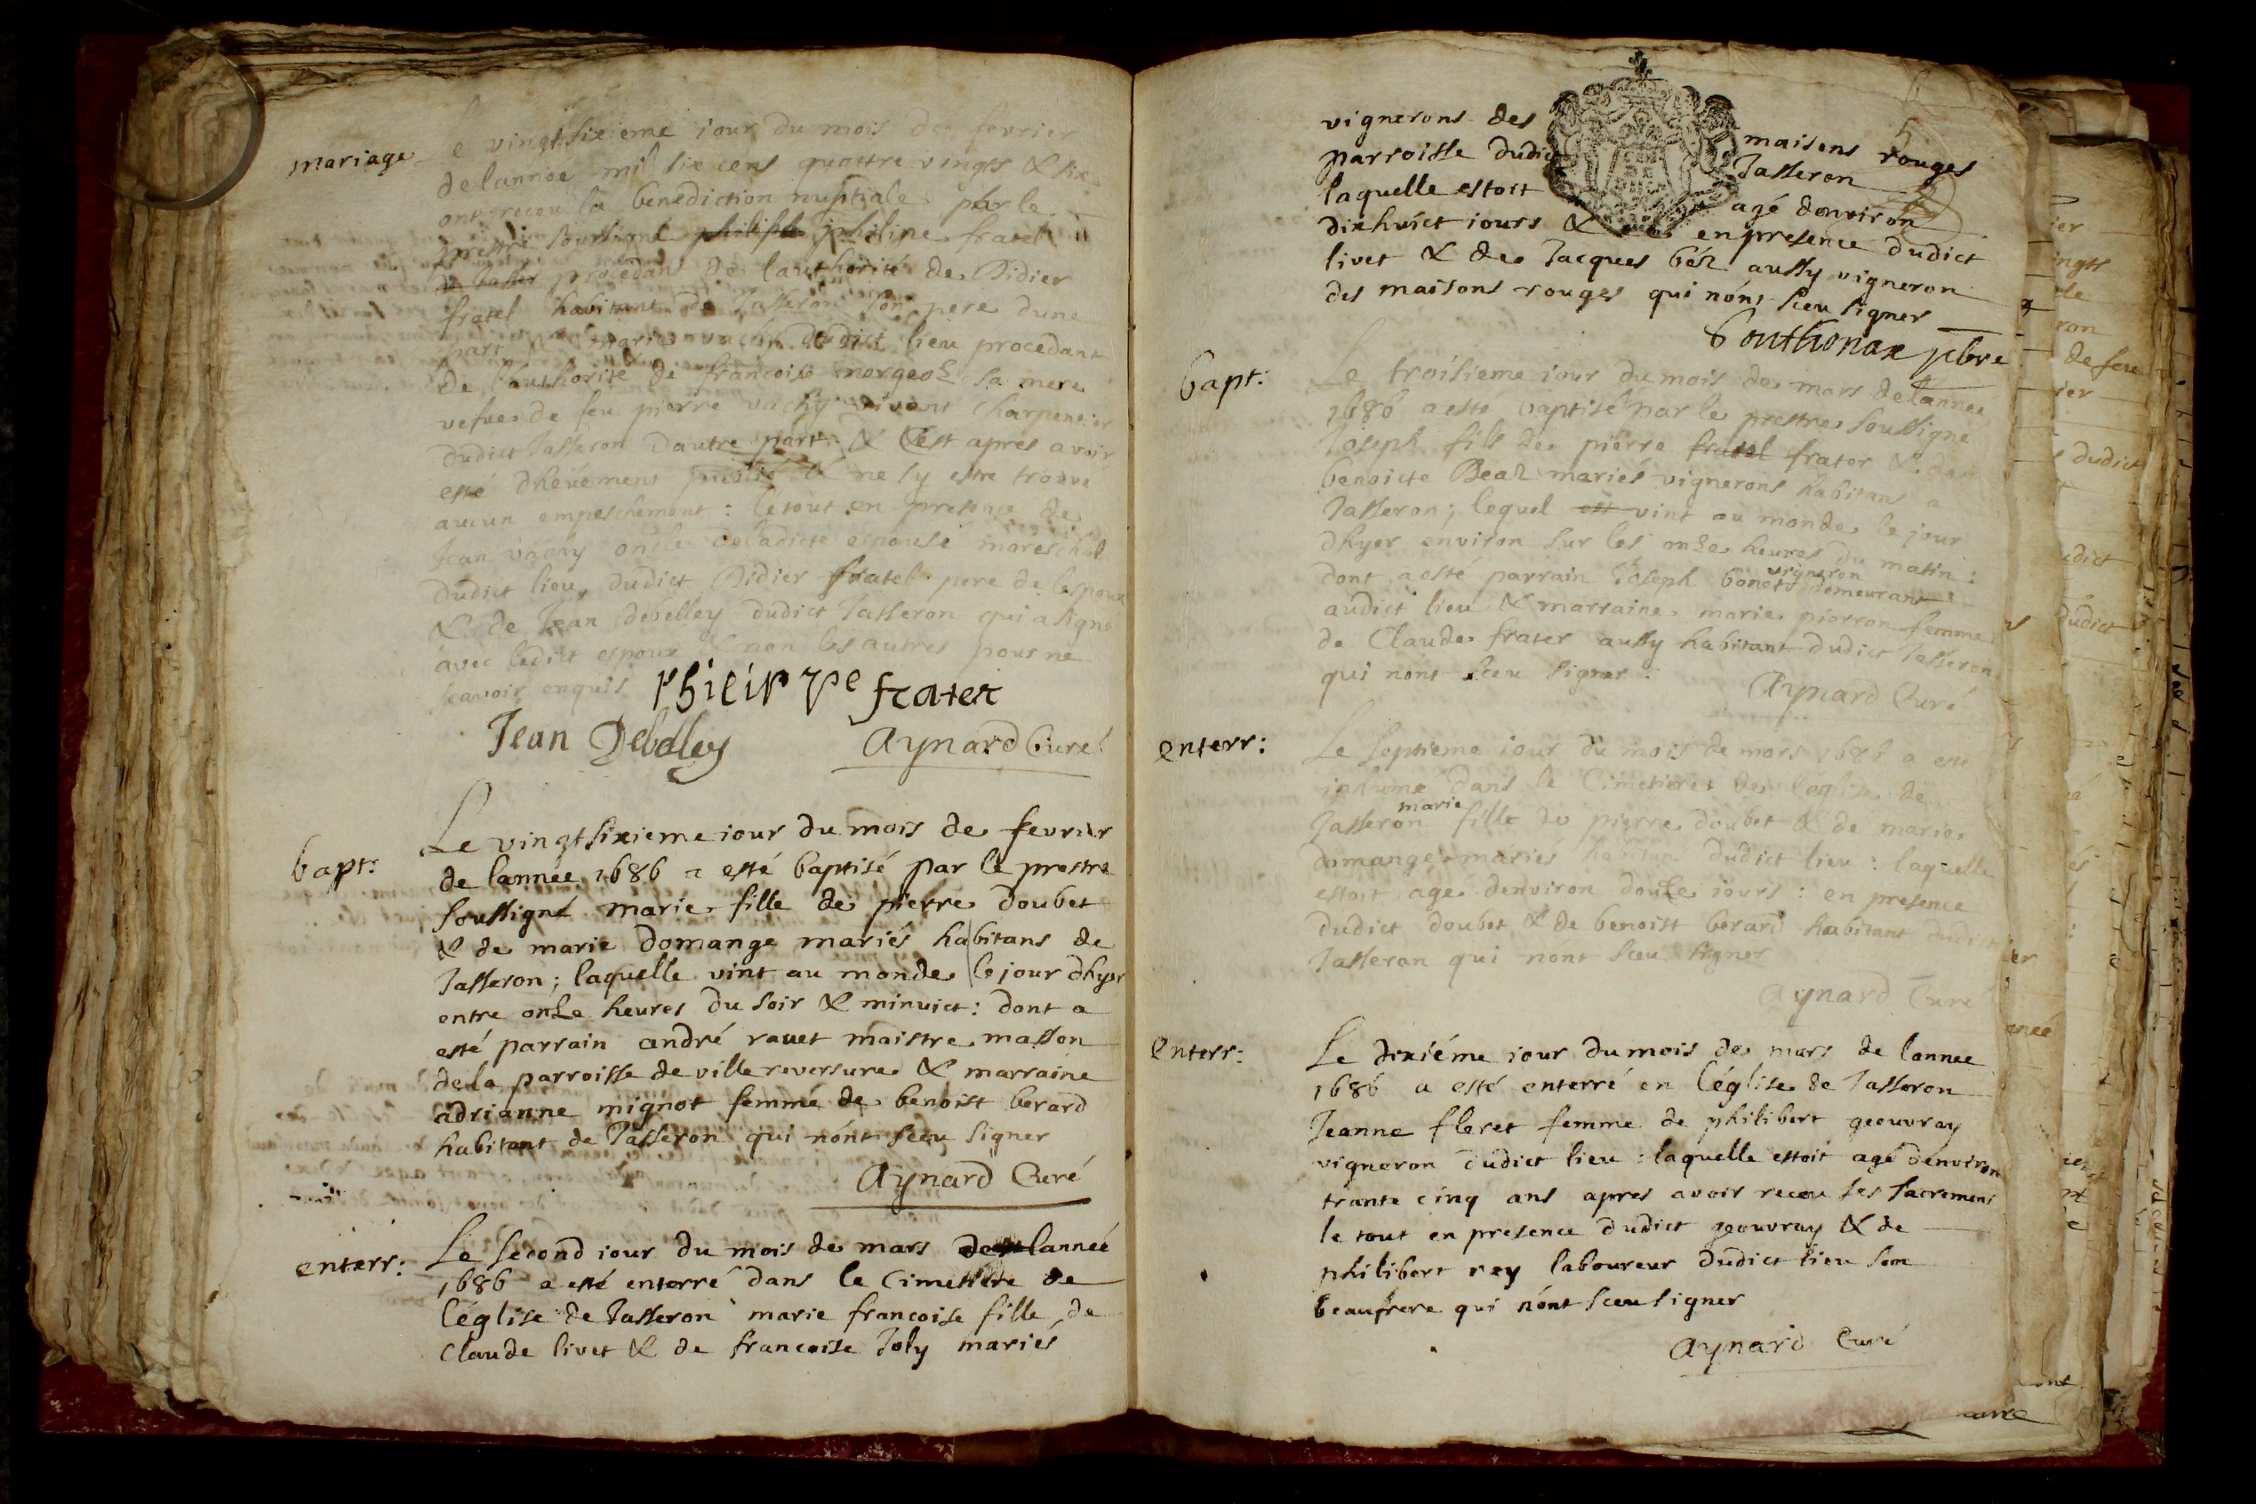 mariage
e vingtsixieme iour du mois de fevrier
de lannee mil six cens quattre vingts & six
ont receu la benediction nuptiale par le
prestre soussigné philipe fratel
procedant de lauthorité de Didier
fratel habitant de Jasseron son pere dune
part & marie vachy dudict lieu procedant
de lauthorité de francoise sa mere
vefue de feu pierre vachy vivant charpentier
dudict Jasseron dautre part & cest apres avoir
esté dheuement publié & ne sy estre trouvé
aucun empeschement : le tout en presence de
Jean vachy oncle de ladicte espouse mareschal
dudict lieu, dudict Didier fratel pere de lespoux
& de Jean debelley dudict Jasseron qui a signé
avec ledict espoux & non les autres pour ne
scavoir enquis
philippe frater
Jean Debeley
Aynard Curé
bapt:
Le vingtsixieme iour du mois de fevrier
de lannée 1686 a esté baptisé par le prestre
soussigné marie fille de pierre doubet
& de marie domange mariés habitans de
Jasseron ; laquelle vint au monde le jour dhyer
entre onze heures du soir & minuict : dont a
esté parrain andré rauet maistre masson
de la parroisse de villereversure & marraine
adrianne mignot femme de benoist berard
habitant de Jasseron qui nónt sceu signer
Aynard Curé
enterr:
Le second iour du mois de mars de lannée
1686 a esté enterré dans le Cimetiere de
léglise de Jasseron marie francoise fille de
claude livet & de francoise Joly mariés
5
vignerons des maisons rouges
parroisse dudict Jasseron
laquelle estoit agé denviron
dixhuict iours & enpresence dudict
livet & de Jacques aussy vigneron
des maisons rouges qui nónt sceu signer
bouthonax pbre
bapt:
Le troisieme iour du mois de mars de lannée
1686 a esté baptisé par le prestre soussigné
Joseph fils de pierre fratel frater & de
benoicte mariés vignerons habitans a
Jasseron ; lequel est vint au monde le jour
dhyer environ sur les onze heures du matin :
dont a esté parrain Joseph vigneron demeurant
audict lieu & marraine marie pierron femme
de Claude frater aussy habitant dudict Jasseron
qui nont sceu signer :
Aynard Curé
enterr:
Le septieme iour du mois de mars 1686 a esté
inhumé dans le Cimetiere de léglise de
Jasseron marie fille de pierre doubet & de marie
domange mariés habitans dudict lieu : laquelle
estoit agé denviron douze iours : en presence
dudict doubet & de benoist berard habitant dudict
Jasseron qui nont sceu signer
Aynard Curé
enterr:
Le dixiéme iour du mois de mars de lannee
1686 a esté enterré en léglise de Jasseron
Jeanne fleret femme de philibert geouvray
vigneron dudict lieu : laquelle estoit agé denviron
trante cinq ans apres avoir receu ses sacremens
le tout en presence dudict geouvray & de
philibert rey laboureur dudict lieu son
beaufrere qui nónt sceu signer
Aynard Curé